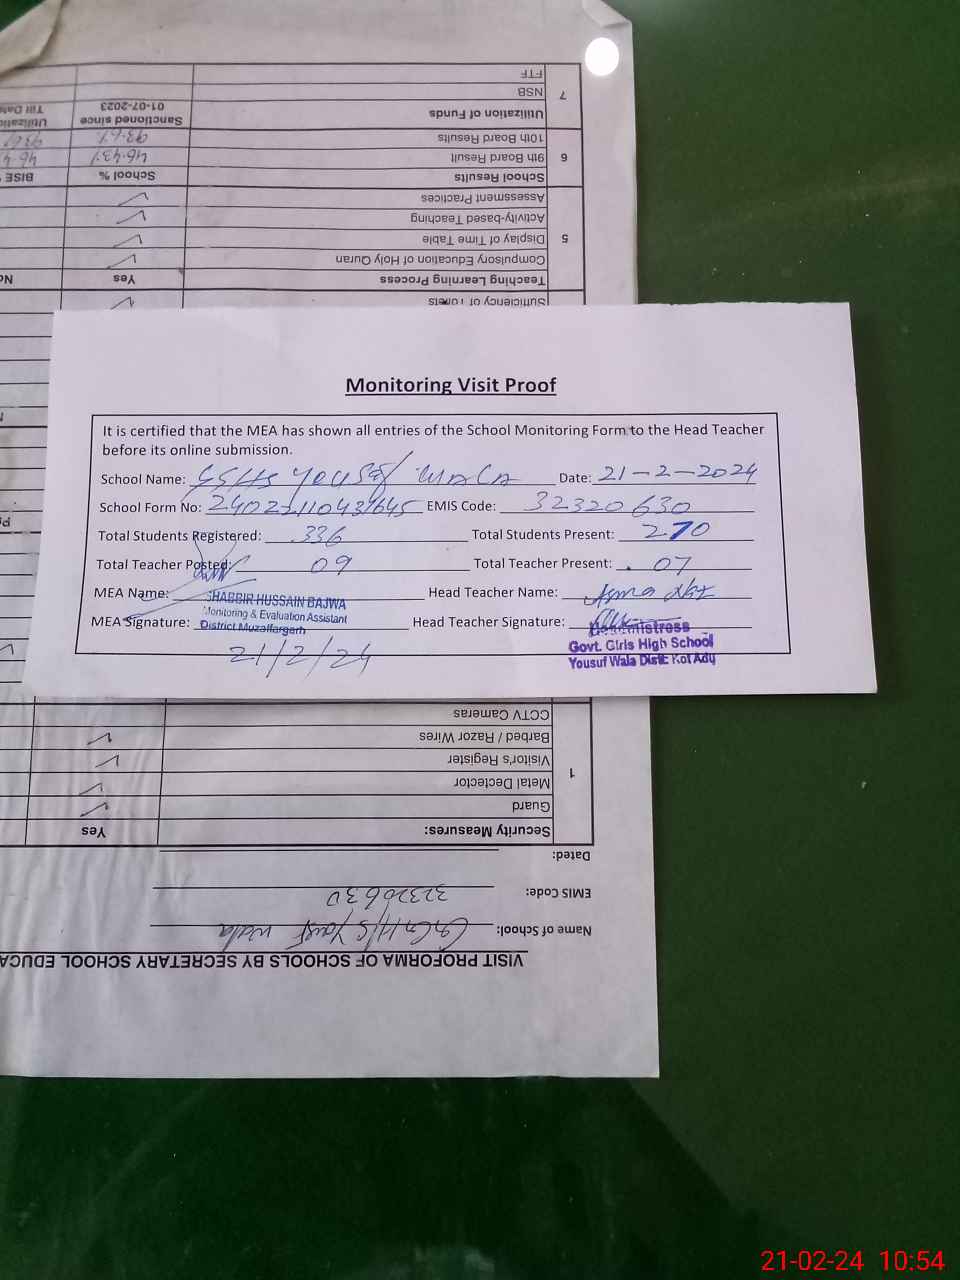 Monitoring Visit Proof
It is certified that the MEA has shown all entries of the School Monitoring Form to the Head Teacher
before its online submission.
School Name: GGHS YOUSAF WALA Date: 21-2-2024
School Form No: EMIS Code: 32320630
Total Students Registered: 336 Total Students Present: 270
Total Teacher Posted: 09 Total Teacher Present: 07
MEA Name: Head Teacher Name: Asma
SHABBIR HUSSAIN BAJWA
Monitoring & Evaluation Assistant
MEA Signature: Head Teacher Signature:
District Muzaffargarh
Headmistress
Govt. Girls High School
Yousuf Wala Distt: Kot Adu
21/2/24
VISIT PROFORMA OF SCHOOLS BY SECRETARY SCHOOL EDUCA
Name of School: G.G.H/S Yousf wala
EMIS Code: 32320630
Dated:
1 Security Measures: Yes
Guard
Metal Dectector
Visitor's Register
Barbed / Razor Wires
CCTV Cameras
Sufficiency of Toilets
5 Teaching Learning Process Yes No
Compulsory Education of Holy Quran
Display of Time Table
Activity-based Teaching
Assessment Practices
6 School Results School % BISE
9th Board Result 46.43%
10th Board Results 93.6%
7 Utilization of Funds Sanctioned since 01-07-2023 Utilization Till Date
NSB
FTF
21-02-24 10:54